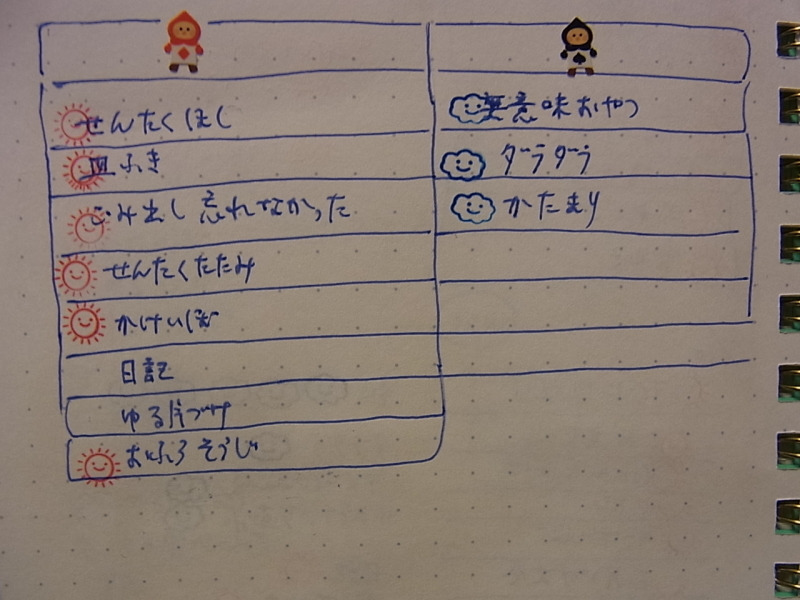 せんたくほし
皿ふき
ごみ出し 忘れなかった
せんたくたたみ
かけいぼ
日記
ゆる片づけ
おふろそうじ
無意味おやつ
ダラダラ
かたまり